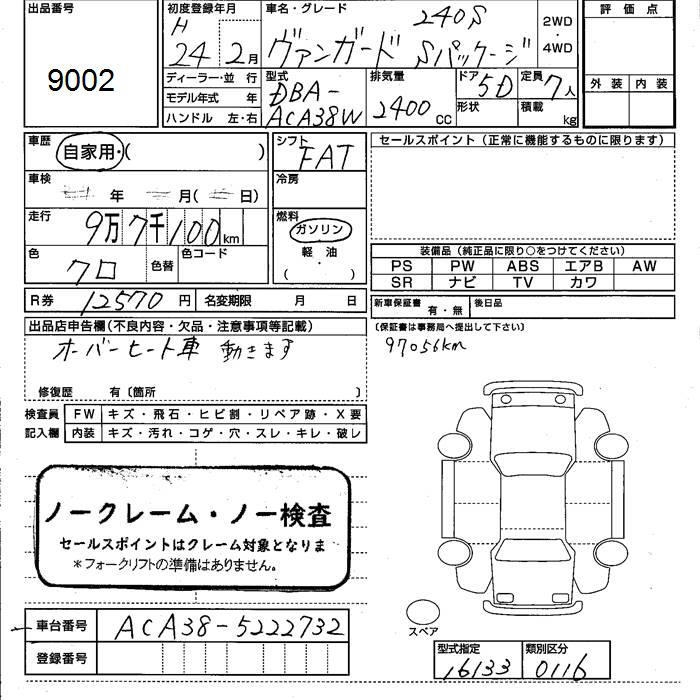 出品番号
9002
初度登録年月
H
24 2月
車名・グレード
240S
ヴァンガード Sパッケージ
2WD
・
4WD
評価点
外装 内装
ディーラー・並行
モデル年式 年
ハンドル 左・右
型式
DBA-
ACA38W
排気量
2400
cc
ドア 5D
形状
定員 7人
積載
kg
車歴
自家用・( )
シフト
FAT
セールスポイント (正常に機能するものに限ります)
車検
年 月( 日)
冷房
走行
9万7千100km
燃料
ガソリン
軽・油
( ・ )
色
クロ
色替
色コード
装備品 (純正品に限り○をつけてください)
PS PW ABS エアB AW
SR ナビ TV カワ
R券 12570円 名変期限 月 日
新車保証書 有・無
後日品
(保証書は事務局へ提出して下さい)
97056km
出品店申告欄 (不良内容・欠品・注意事項等記載)
オーバーヒート車 動きます
修復歴 有〔箇所 〕
検査員 FW キズ・飛石・ヒビ割・リペア跡・X要
記入欄 内装 キズ・汚れ・コゲ・穴・スレ・キレ・破レ
ノークレーム・ノー検査
セールスポイントはクレーム対象となりま
*フォークリフトの準備はありません。
スペア
車台番号 ACA38-5222732
登録番号
型式指定 類別区分
16133 0116